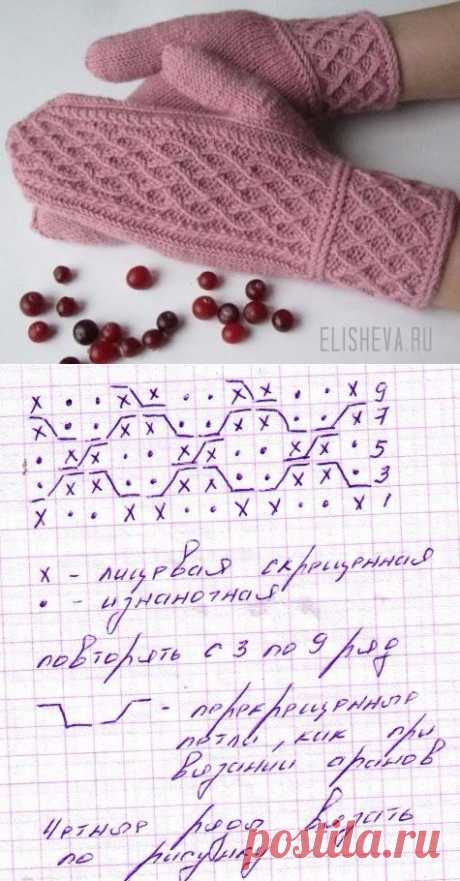 ELISHEVA.RU
x • • x x • • x x • • x 9
x • • x x • • x x • • x 7
• x x • • x x • • x x • 5
• x x • • x x • • x x • 3
x • • x x • • x x • • x 1
x - лицевая скрещенная
• - изнаночная
повторять с 3 по 9 ряд
- перекрещенные
петли, как при
вязании аранов
Четные ряды вязать
по рисунку
postila.ru